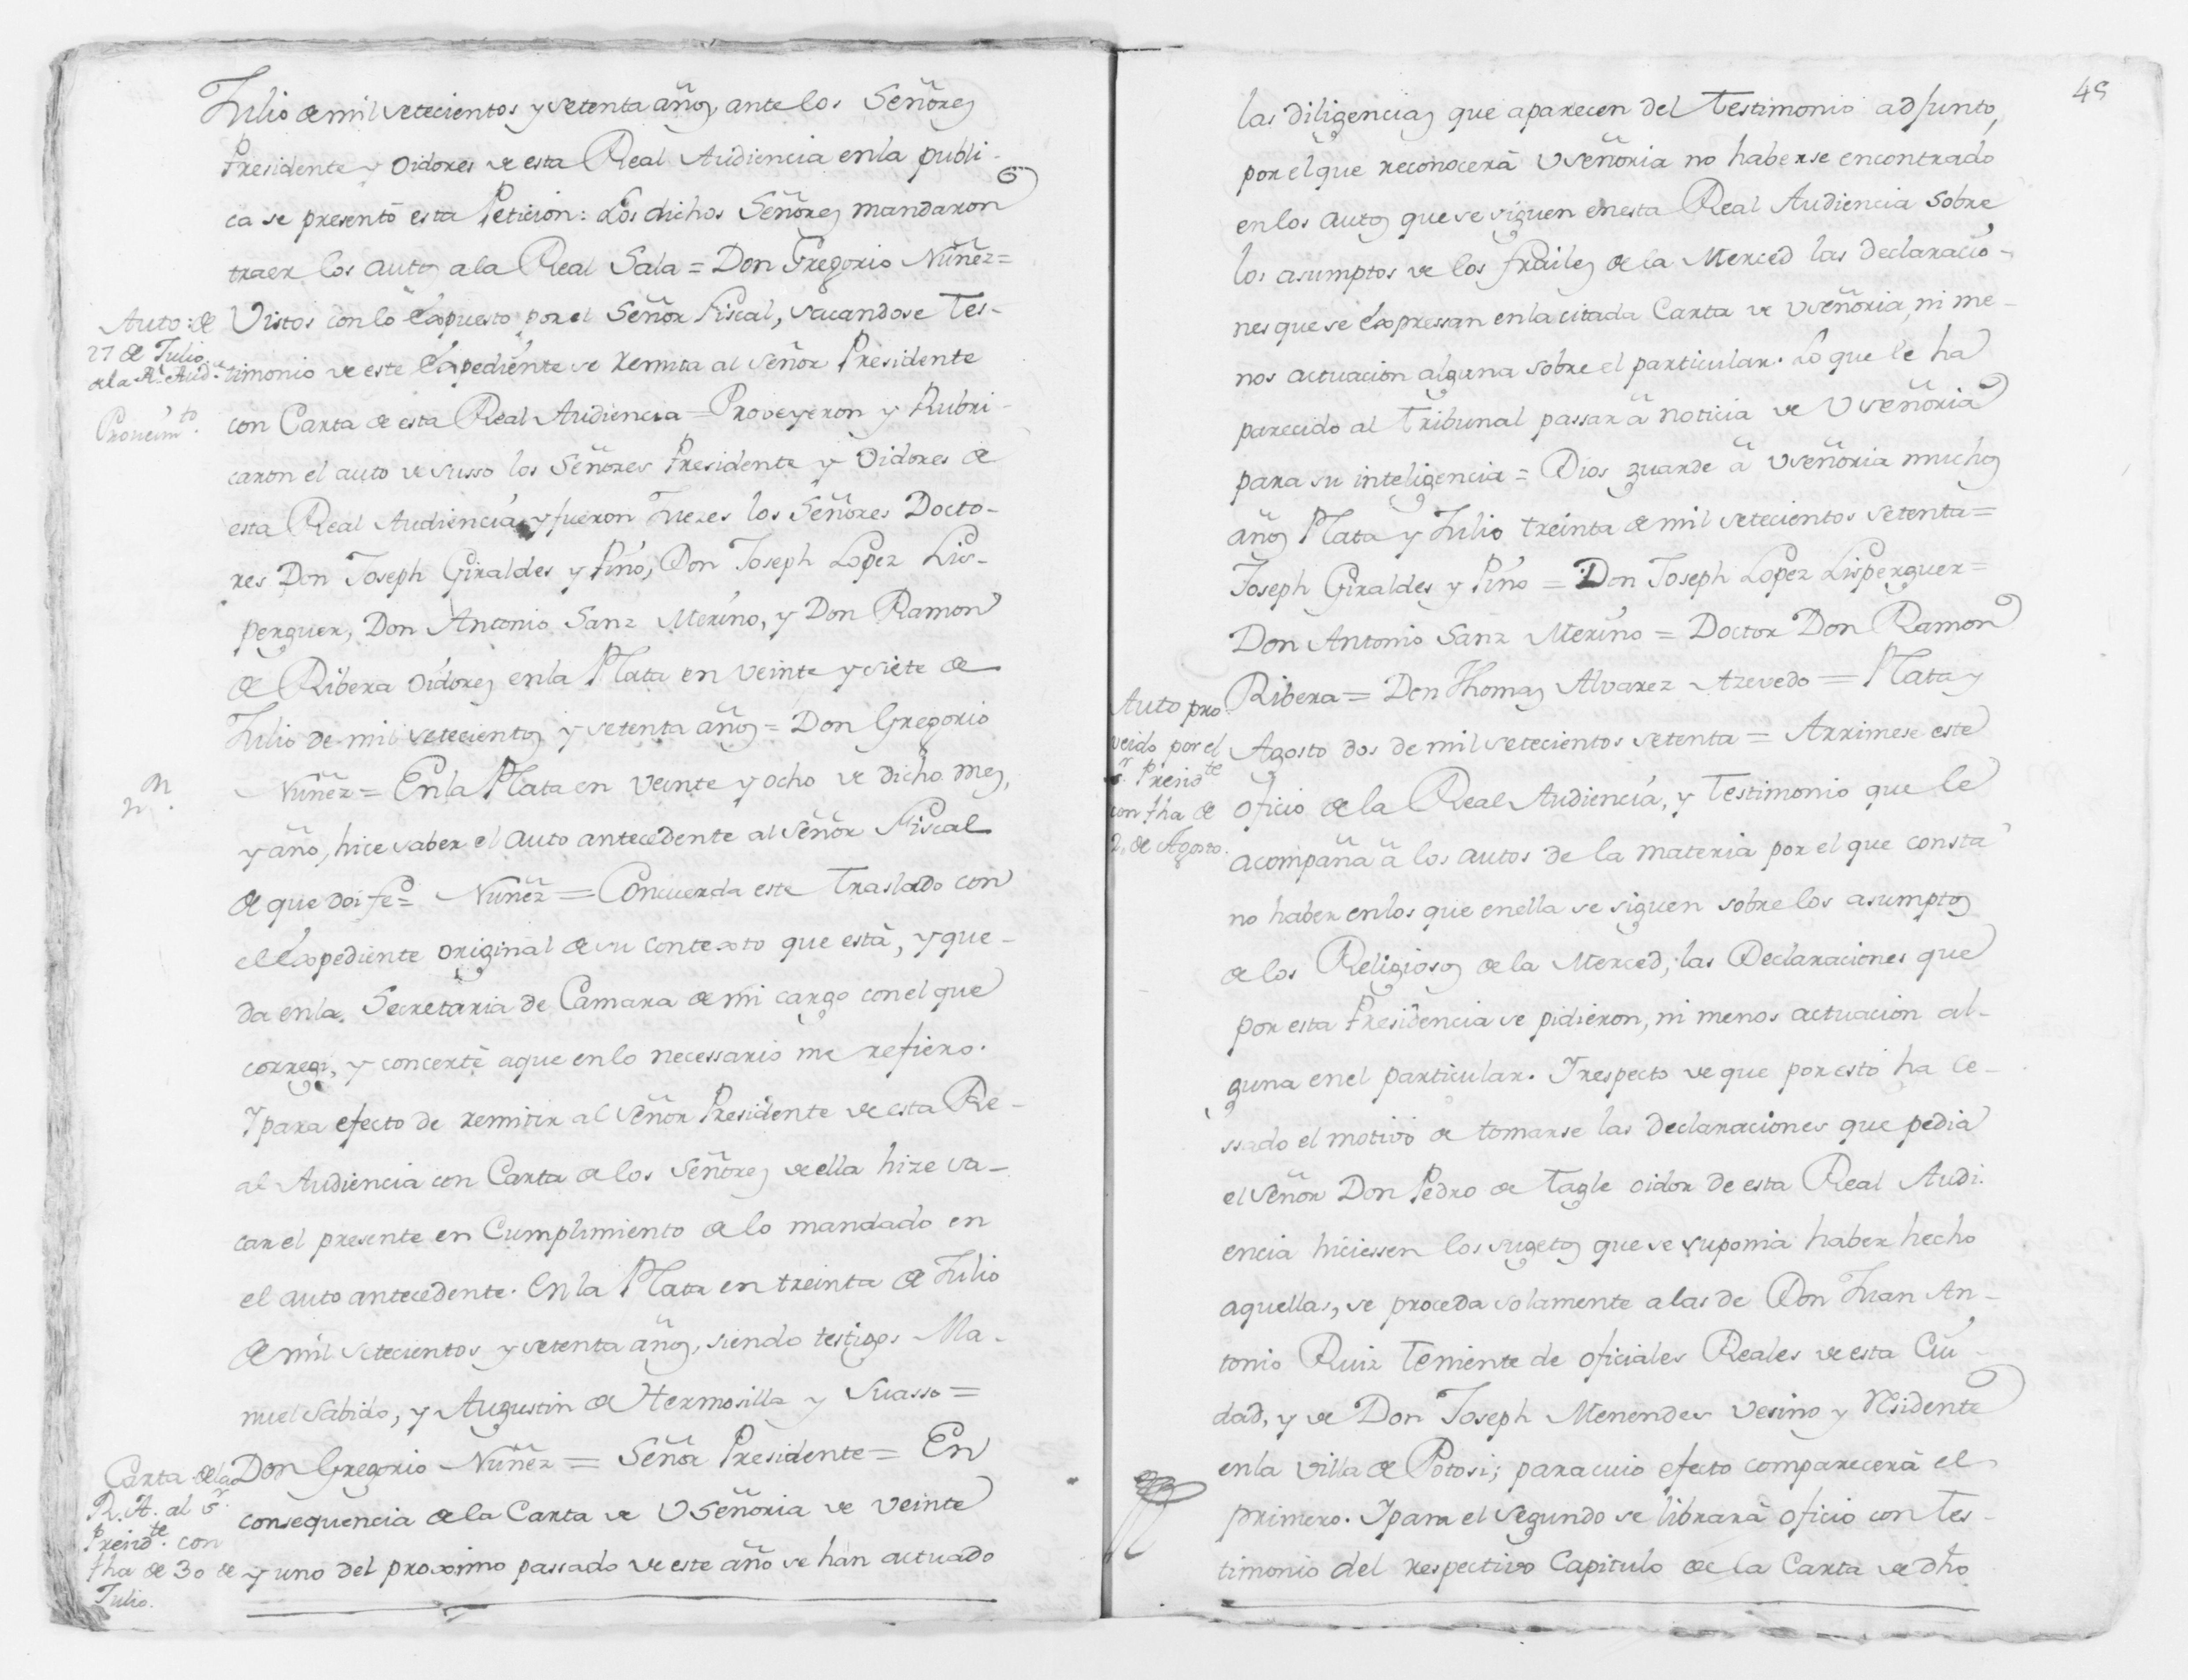 Julio de mil setecientos y setenta años, ante los Señores
Presidente y Oidores de esta Real Audiencia en la publi-
ca se presentó esta Peticion: Los dichos Señores mandaron
traer los autos a la Real Sala = Don Gregorio Nuñez =
Auto: de
27 de Julio
de la Rl. Auda.
Proveimto.
Vistos con lo expuesto por el Señor Fiscal, sacandose Tes-
timonio de este Expediente se remita al Señor Presidente
con Carta de esta Real Audiencia = Proveyeron y Rubri-
caron el auto de susso los Señores Presidente y Oidores de
esta Real Audiencia, y fueron Juezes los Señores Docto-
res Don Joseph Giraldes y Pino, Don Joseph Lopez Lis-
perguer, Don Antonio Sanz Merino, y Don Ramon
de Ribera Oidores en la Plata en veinte y siete de
Julio de mil setecientos y setenta años = Don Gregorio
Nuñez = En la Plata en veinte y ocho de dicho mes,
y año, hice saber el auto antecedente al Señor Fiscal
de que doi fee = Nuñez = Concuerda este Traslado con
el Expediente original de su contexto que està, y que-
da en la Secretaria de Camara de mi cargo con el que
corregi, y concertè a que en lo necessario me refiero.
Y para efecto de remitir al Señor Presidente de esta Re-
al Audiencia con Carta de los Señores de ella hize sa-
car el presente en Cumplimiento de lo mandado en
el auto antecedente. En la Plata en treinta de Julio
de mil setecientos y setenta años, siendo testigos Ma-
nuel Sabido, y Augustin de Hermosilla y Suasso =
Carta de la
R. A. al Sr.
Presidte. con
fha de 30 de
Julio.
Don Gregorio Nuñez = Señor Presidente = En
consequencia de la Carta de VSeñoria de veinte
y uno del proximo passado de este año se han actuado
49
las diligencias que aparecen del Testimonio adjunto,
por el que reconocerà VSeñoria no haberse encontrado
en los autos que se siguen en esta Real Audiencia sobre
los asumptos de los frailes de la Merced las declaracio-
nes que se expressan en la citada Carta de VSeñoria, ni me-
nos actuacion alguna sobre el particular. Lo que le ha
parecido al Tribunal passar à noticia de VSeñoria
para su inteligencia = Dios guarde à VSeñoria muchos
años Plata y Julio treinta de mil setecientos setenta =
Joseph Giraldes y Pino = Don Joseph Lopez Lisperguer =
Don Antonio Sanz Merino = Doctor Don Ramon
Auto pro
veido por el
Sr. Presidte
con fha de
2. de Agosto.
Ribera = Don Thomas Alvarez Azevedo = Plata y
Agosto dos de mil setecientos setenta = Arrimese este
oficio de la Real Audiencia, y Testimonio que le
acompaña à los autos de la materia por el que consta
no haber en los que en ella se siguen sobre los asumptos
de los Religiosos de la Merced, las Declaraciones que
por esta Presidencia se pidieron, ni menos actuacion al-
guna en el particular. Y respecto de que por esto ha ce-
ssado el motivo de tomarse las declaraciones que pedia
el Señor Don Pedro de Tagle oidor de esta Real Audi-
encia hiciessen los sugetos que se suponia haber hecho
aquellas, se proceda solamente a las de Don Juan An-
tonio Ruiz Teniente de oficiales Reales de esta Ciu-
dad, y de Don Joseph Menendes Vesino y Residente
en la villa de Potosi; para cuio efecto comparecerà el
primero. Y para el segundo se librarà oficio con Tes-
timonio del respectivo Capitulo de la Carta de dho